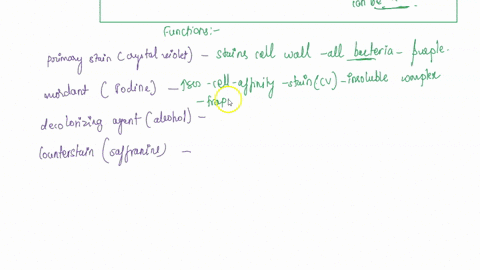 can be
Functions:-
primary stain (crystal violet) - stains cell wall - all bacteria - purple.
mordant (Iodine) - - cell-affinity - stain (CV) - insoluble complex
- trap
decolorizing agent (alcohol) -
Counterstain (saffranine) -